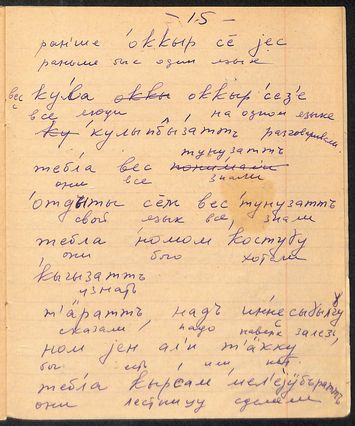 - 15 -
ра́ньше о́ккыр се̄ jес
раньше был один язык
вес ку́ла оккы оккыр се́зе
все люди на одном языке
ку кулыпбы́затть разговаривали
тунузатть
тебла вес понимали
они все знали
о́тдыты се̄м вес тунузатть
свой язык все знали
тебла но́мом ко́стугу
они бога хотели
кыгызатть
узнать
сказали надо наверх залезть
ном jен али т'а̄ккү
бог есть или нет
тебла
они лестницу сделали